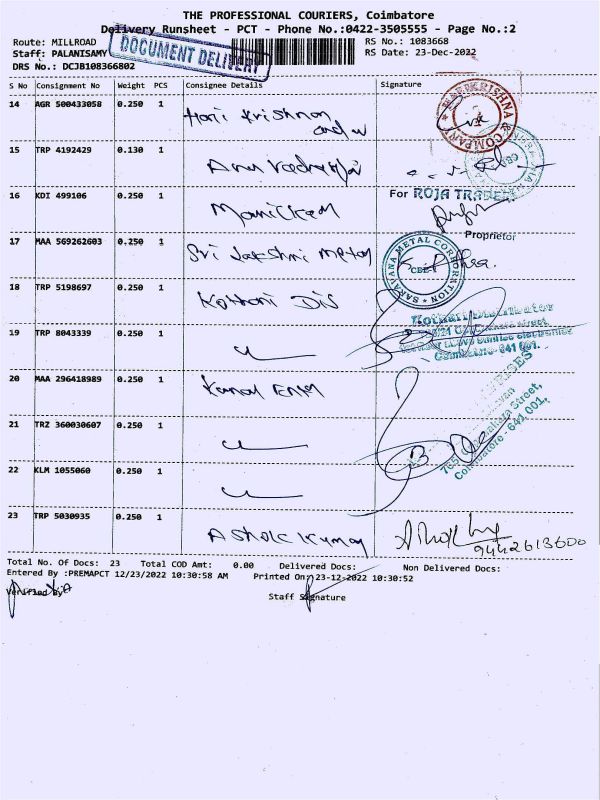 THE PROFESSIONAL COURIERS, Coimbatore
Delivery Runsheet - PCT - Phone No.:0422-3505555 - Page No.:2
Route: MILLROAD
Staff: PALANISAMY
DRS No.: DCJB108366802
DOCUMENT DELIVERY
RS No.: 1083668
RS Date: 23-Dec-2022
S No Consignment No Weight PCS Consignee Details Signature
14 AGR 500433058 0.250 1 Hari Krishnan and
HARI KRISHNA & COMPANY
15 TRP 4192429 0.130 1
16 KDI 499106 0.250 1 Manickam
For ROJA TRADERS
Proprietor
17 MAA 569262603 0.250 1 Sri Lakshmi Metal
SARAVANA METAL CORPORATION
CBE-1
18 TRP 5198697 0.250 1 Kothari Dis
Kothari Distributor
Coimbatore-641 001.
19 TRP 8043339 0.250 1
20 MAA 296418989 0.250 1
21 TRZ 360030607 0.250 1
Street,
Coimbatore - 641 001.
22 KLM 1055060 0.250 1
23 TRP 5030935 0.250 1 Ashok Kumar
9442613600
Total No. Of Docs: 23 Total COD Amt: 0.00 Delivered Docs: Non Delivered Docs:
Entered By :PREMAPCT 12/23/2022 10:30:58 AM Printed On: 23-12-2022 10:30:52
Verified By
Staff Signature